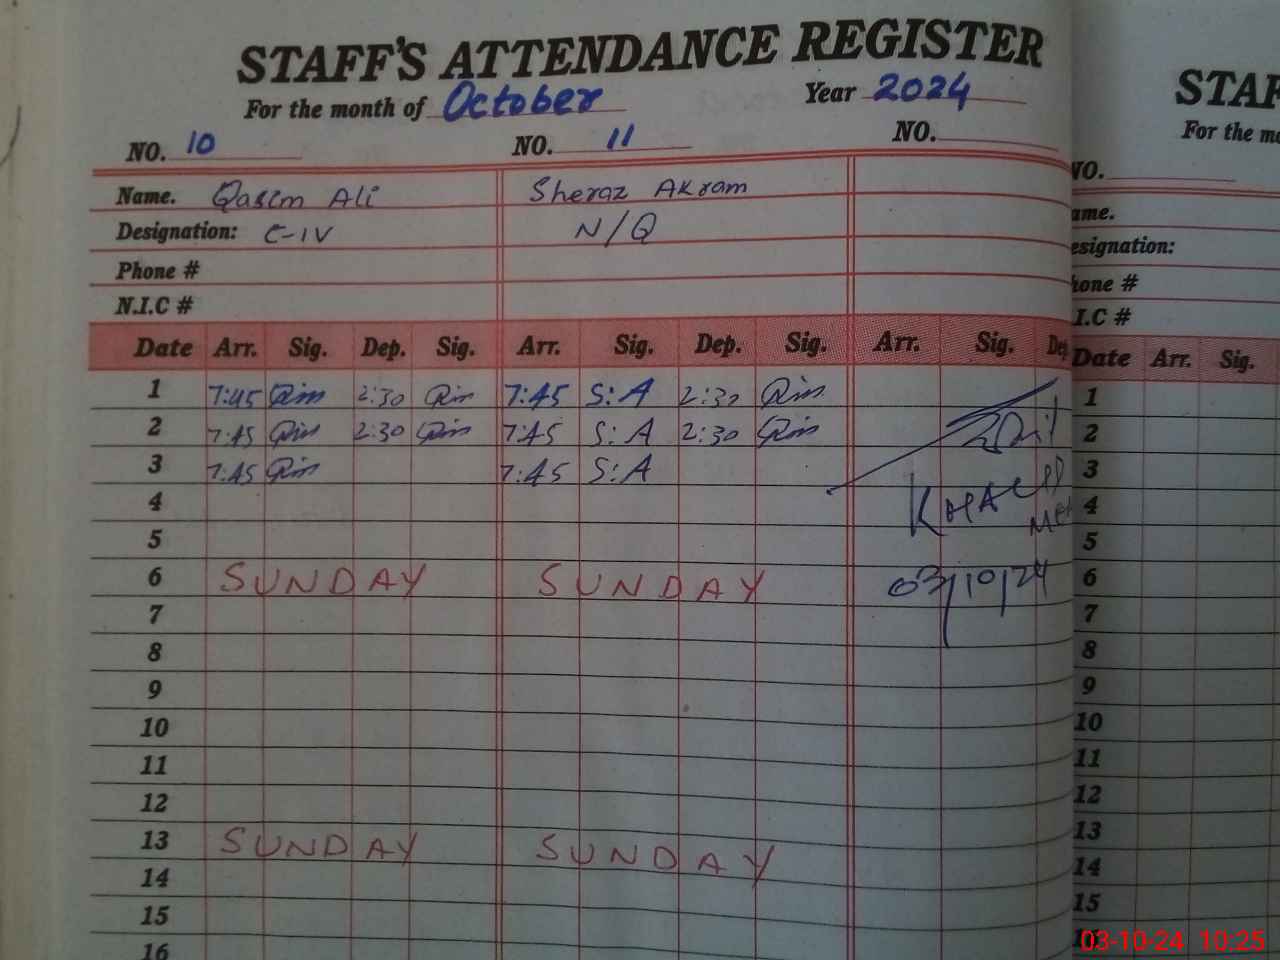 STAFF'S ATTENDANCE REGISTER
For the month of October Year 2024
NO. 10 NO. 11 NO.
Name. Qasim Ali Sheraz Akram
Designation: C-IV N/Q
Phone #
N.I.C #
Date Arr. Sig. Dep. Sig. Arr. Sig. Dep. Sig. Arr. Sig. Dep
1 7:45 Qim 2:30 Qim 7:45 S:A 2:30 Qim
2 7:45 Qim 2:30 Qim 7:45 S:A 2:30 Qim
3 7:45 Qim 7:45 S:A
4 KHALID
5
6 SUNDAY SUNDAY 03/10/24
7
8
9
10
11
12
13 SUNDAY SUNDAY
14
15
16
STAF
For the mo
NO.
ame.
esignation:
hone #
.I.C #
Date Arr. Sig.
1
2
3
4
5
6
7
8
9
10
11
12
13
14
15
03-10-24 10:25